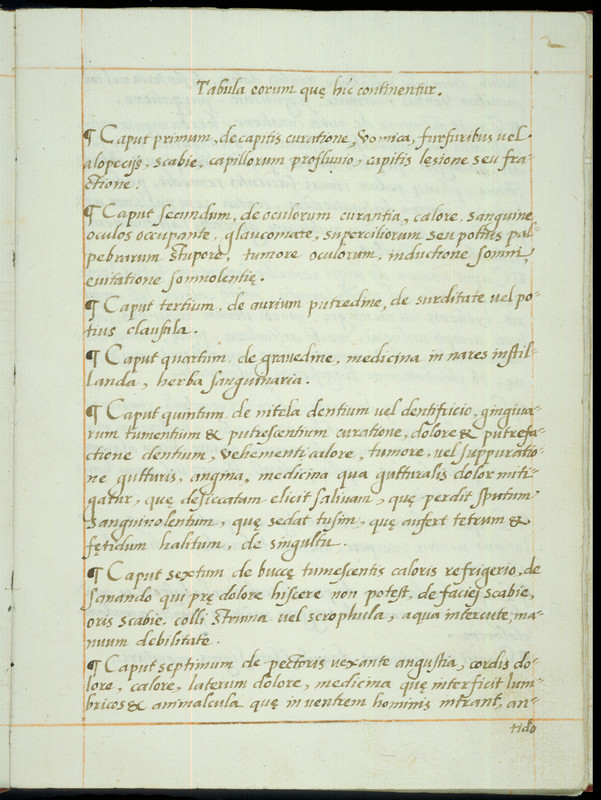 Tabula eorum quę hic continentur.
¶ Caput primum, de capitis curatione, vomica, furfuribus vel
alopecijs, scabie, capillorum profluvio, capitis lęsione seu fra-
ctione.
¶ Caput secundum, de oculorum curantia, calore, sanguine
oculos occupante, glaucomate, superciliorum seu potius pal-
pebrarum stupore, tumore oculorum, inductione somni,
evitatione somnolentię.
¶ Caput tertium, de aurium putredine, de surditate vel po-
tius clausila.
¶ Caput quartum de gravedine, medicina in nares instil-
landa, herba sanguinaria.
¶ Caput quintum de nitela dentium vel dentifricio, gingiva-
rum tumentium & putrescentium curatione, dolore & putrefa-
ctione dentium, vehementi calore, tumore, vel suppuratio-
ne gutturis, angina, medicina qua gutturalis dolor miti-
gatur, quę desiccatam elicit salivam, quę perdit sputum
sanguinolentum, quę sedat tusim, quę aufert tetrum &
fętidum halitum, de singultu.
¶ Caput sextum de buccę tumescentis caloris refrigerio, de
sanando qui prę dolore hiscere non potest, de faciej scabie,
oris scabie, colli struma vel scrophula, aqua intercute, ma-
nuum debilitate.
¶ Caput septimum de pectoris vexante angustia, cordis do-
lore, calore, laterum dolore, medicina quę interficit lum-
bricos & animalcula quę in ventrem hominis intrant, an-
tido